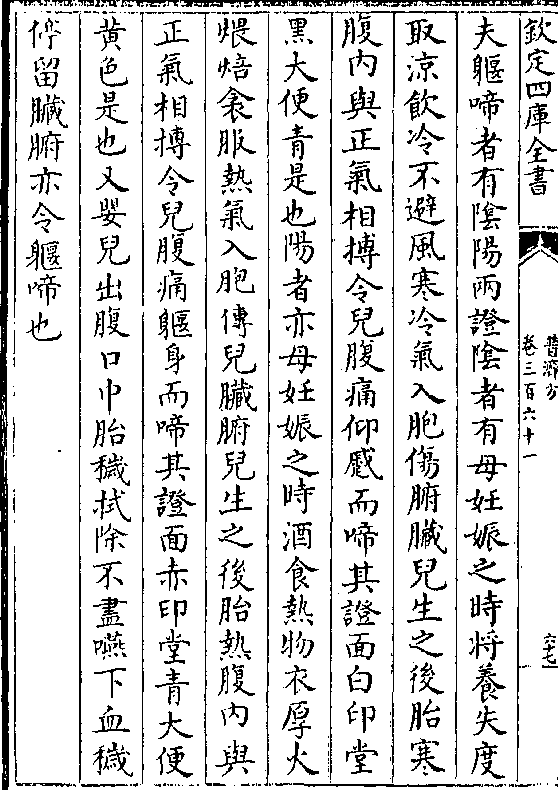 欽定四庫全書
普濟方
卷三百六十一
六十七
夫軀啼者有陰陽兩證陰者有母妊娠之時將養失度
取涼飲冷不避風寒冷氣入胞傷腑臟兒生之後胎寒
腹内與正氣相搏令兒腹痛仰慼而啼其證面白印堂
黑大便青是也陽者亦母妊娠之時酒食熱物衣厚火
煨焙衾服熱氣入胞傳兒臟腑兒生之後胎熱腹内與
正氣相搏令兒腹痛軀身而啼其證面赤印堂青大便
黄色是也又嬰兒出腹口中胎穢拭除不盡嚥下血穢
停留臟腑亦令軀啼也